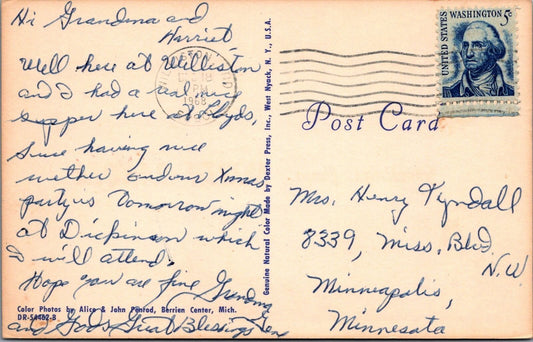 Hi Grandma and
Harriet
Well here at Williston
and I had a real nice
supper here at Lloyds,
Sure having nice
wether and our Xmas
party is tomorrow night
at Dickinson which
I will attend.
Hope you are fine Grandma
and Gods Great Blessings on
Color Photos by Alice & John Penrod, Berrien Center, Mich.
DR-54462-B
Genuine Natural Color Made by Dexter Press, Inc., West Nyack, N. Y., U.S.A.
1968
UNITED STATES
WASHINGTON 5c
Post Card
Mrs. Henry Tyndall
8339, Miss. Blvd
N.W
Minneapolis,
Minnesota